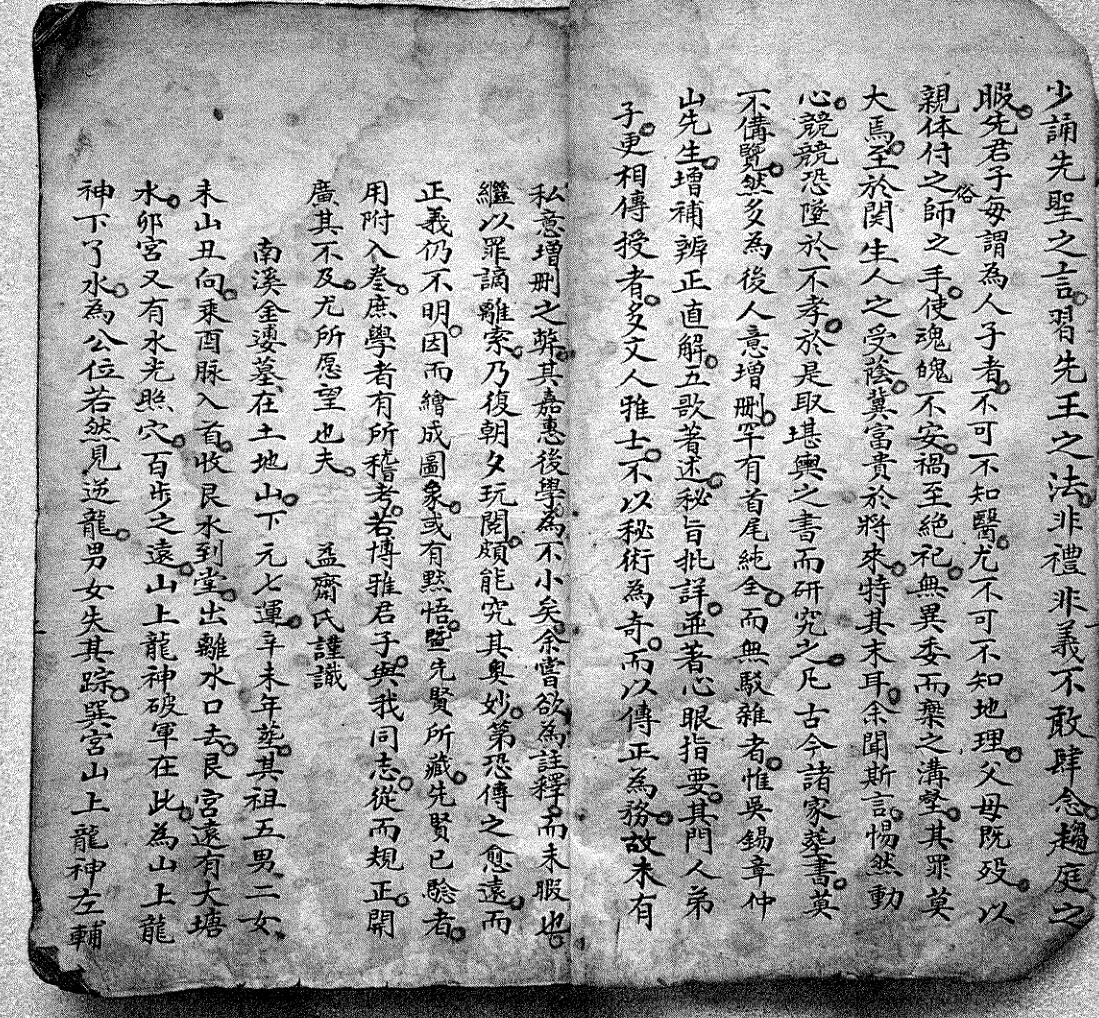 少誦先聖之言習先王之法非禮非義不敢肆念趨庭之
暇先君子每謂為人子者不可不知醫尤不可不知地理父母既歿以
親体付之俗師之手使魂魄不安禍至絕祀無異委而棄之溝壑其罪莫
大焉至於関生人之受蔭冀富貴於將來特其末耳余聞斯言惕然動
心競競恐墜於不孝於是取堪輿之書而研究之凡古今諸家塟書莫
不備覽然多為後人意增刪罕有首尾純全而無駁雜者惟吳錫章仲
山先生增補辨正直解五歌著述秘旨批詳並著心眼指要其門人弟
子更相傳授者多文人雅士不以秘術為奇而以傳正為務故未有
私意增刪之弊其嘉惠後學為不小矣余嘗欲為註釋而未暇也
繼以罪謫離索乃復朝夕玩閱頗能究其奧妙第恐傳之愈遠而
正義仍不明因而繪成圖象或有默悟暨先賢所藏先賢已驗者
用附入卷庶學者有所稽考若博雅君子與我同志從而規正開
廣其不及尤所愿望也夫 益齋氏謹識
南溪金婆墓在土地山下元七運辛未年塟其祖五男二女
未山丑向乘酉脉入首收艮水到堂出離水口去艮宮遠有大塘
水卯宮又有水光照穴百步之遠山上龍神破軍在此為山上龍
神下了水為公位若然見逆龍男女失其踪巽宮山上龍神左輔